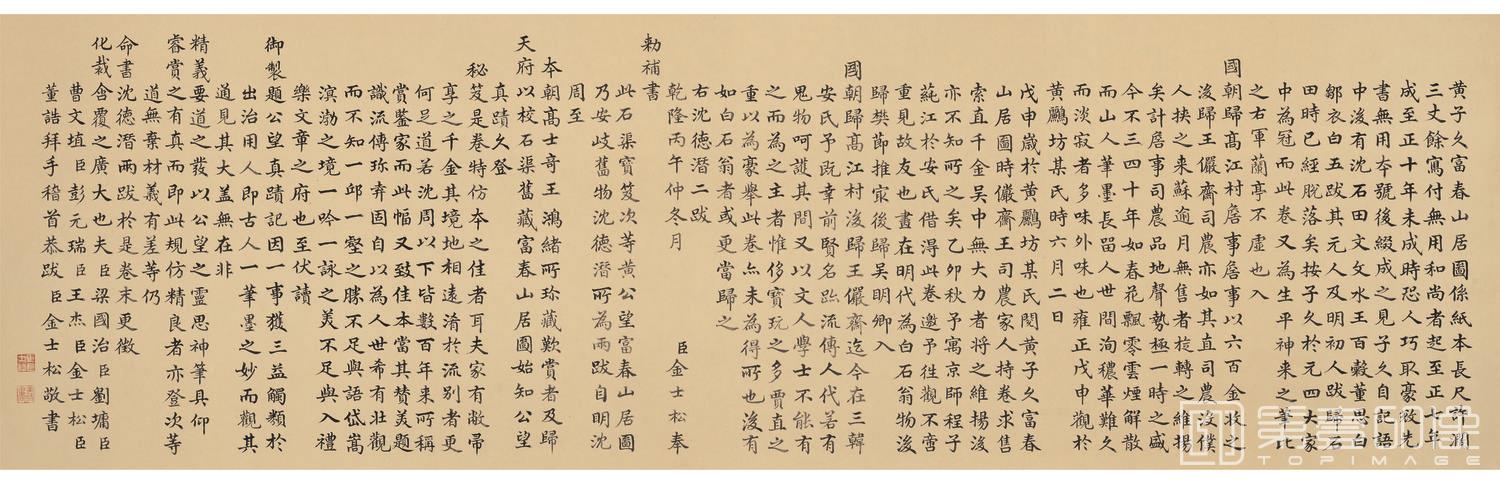 黃子久富春山居圖係紙本長尺許濶
三丈餘寫付無用和尚者起至正七年
成至正十年未成時恐人巧取豪敓先
書無用本號後綴成之見子久自記語
中後有沈石田文文水王百穀董思白
鄒衣白五跋其元人及明初人跋歸石
田時已經脫落矣按子久於元四大家
中為冠而此卷又為生平神来之筆比
之右軍蘭亭不虛也入
國朝歸髙江村詹事詹事以六百金收之
後歸王儼齋司農亦如其直司農沒僕
人挾之来蘇逾月無售者旋轉之維揚
矣計詹事司農品地聲勢極一時之盛
今不三四十年如春花飄零雲煙解散
而山人筆墨長留人世間洵穠華難久
而淡寂者多味外味也雍正戊申觀於
黃鸝坊某氏時六月二日
戊申歲於黃鸝坊某氏閱黃子久富春
山居圖時儼齋王司農家人持卷求售
索直千金吳中無大力者將之維揚後
亦不知所之矣乙卯秋予寓京師程子
蒓江於安氏借得此卷邀予往觀不啻
重見故友也畫在明代為白石翁物後
歸樊節推家後歸吳明卿入
國朝歸髙江村後歸王儼齋迄今在三韓
安氏予既幸前賢名跡流傳人代若有
鬼物呵護其間又以文人學士不能有
之而為之主者惟侈寶玩之多賈直之
重以為豪舉此卷亦未為得所也後有
如白石翁者或更當歸之
右沈德潛二跋
乾隆丙午仲冬月 臣金士松奉
勅補書
此石渠寶笈次等黃公望富春山居圖
乃安岐舊物沈德潛所為兩跋自明沈
周至
本朝髙士奇王鴻緒所珍藏歎賞者及歸
天府以校石渠舊藏富春山居圖始知公望
真蹟久登
秘笈是卷特仿本之佳者耳夫家有敝帚
享之千金其境地相遠淆於流別者更
何足道若沈周以下皆數百年来所稱
賞鑒家而此幅又致佳本當其賛美題
識流傳珍弆固自以為人世希有壯觀
而不知一邱一壑之勝不足與語岱嵩
濱渤之境一吟一詠之美不足與入禮
樂文章之府也至伏讀
御製題公望真蹟記因一事獲三益觸類於
出治用人即古人一筆墨之妙而觀其
通見其大蓋無在非
精義要道之發以公望之靈思神筆具仰
睿賞之有真而即此規仿精良者亦登次等
道無棄材義有差等仍
命書沈德潛兩跋於是卷末更徵
化裁含覆之廣大也夫臣梁國治臣劉墉臣
曹文埴臣彭元瑞臣王杰臣金士松臣
董誥拜手稽首恭跋 臣金士松敬書
TOPIMAGE